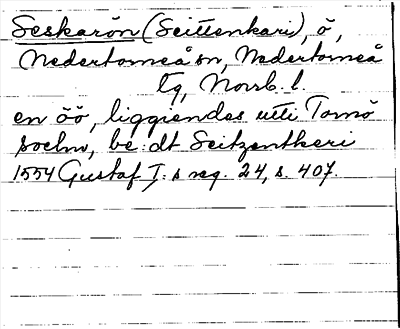 Seskarön (Seittenkari), ö,
Nedertorneå sn, Nedertorneå
tg, Norrb. l.
en öö, liggiendes utti Tornö
sochn, be:dt Seitzentkeri
1554 Gustaf I:s reg. 24, s. 407.